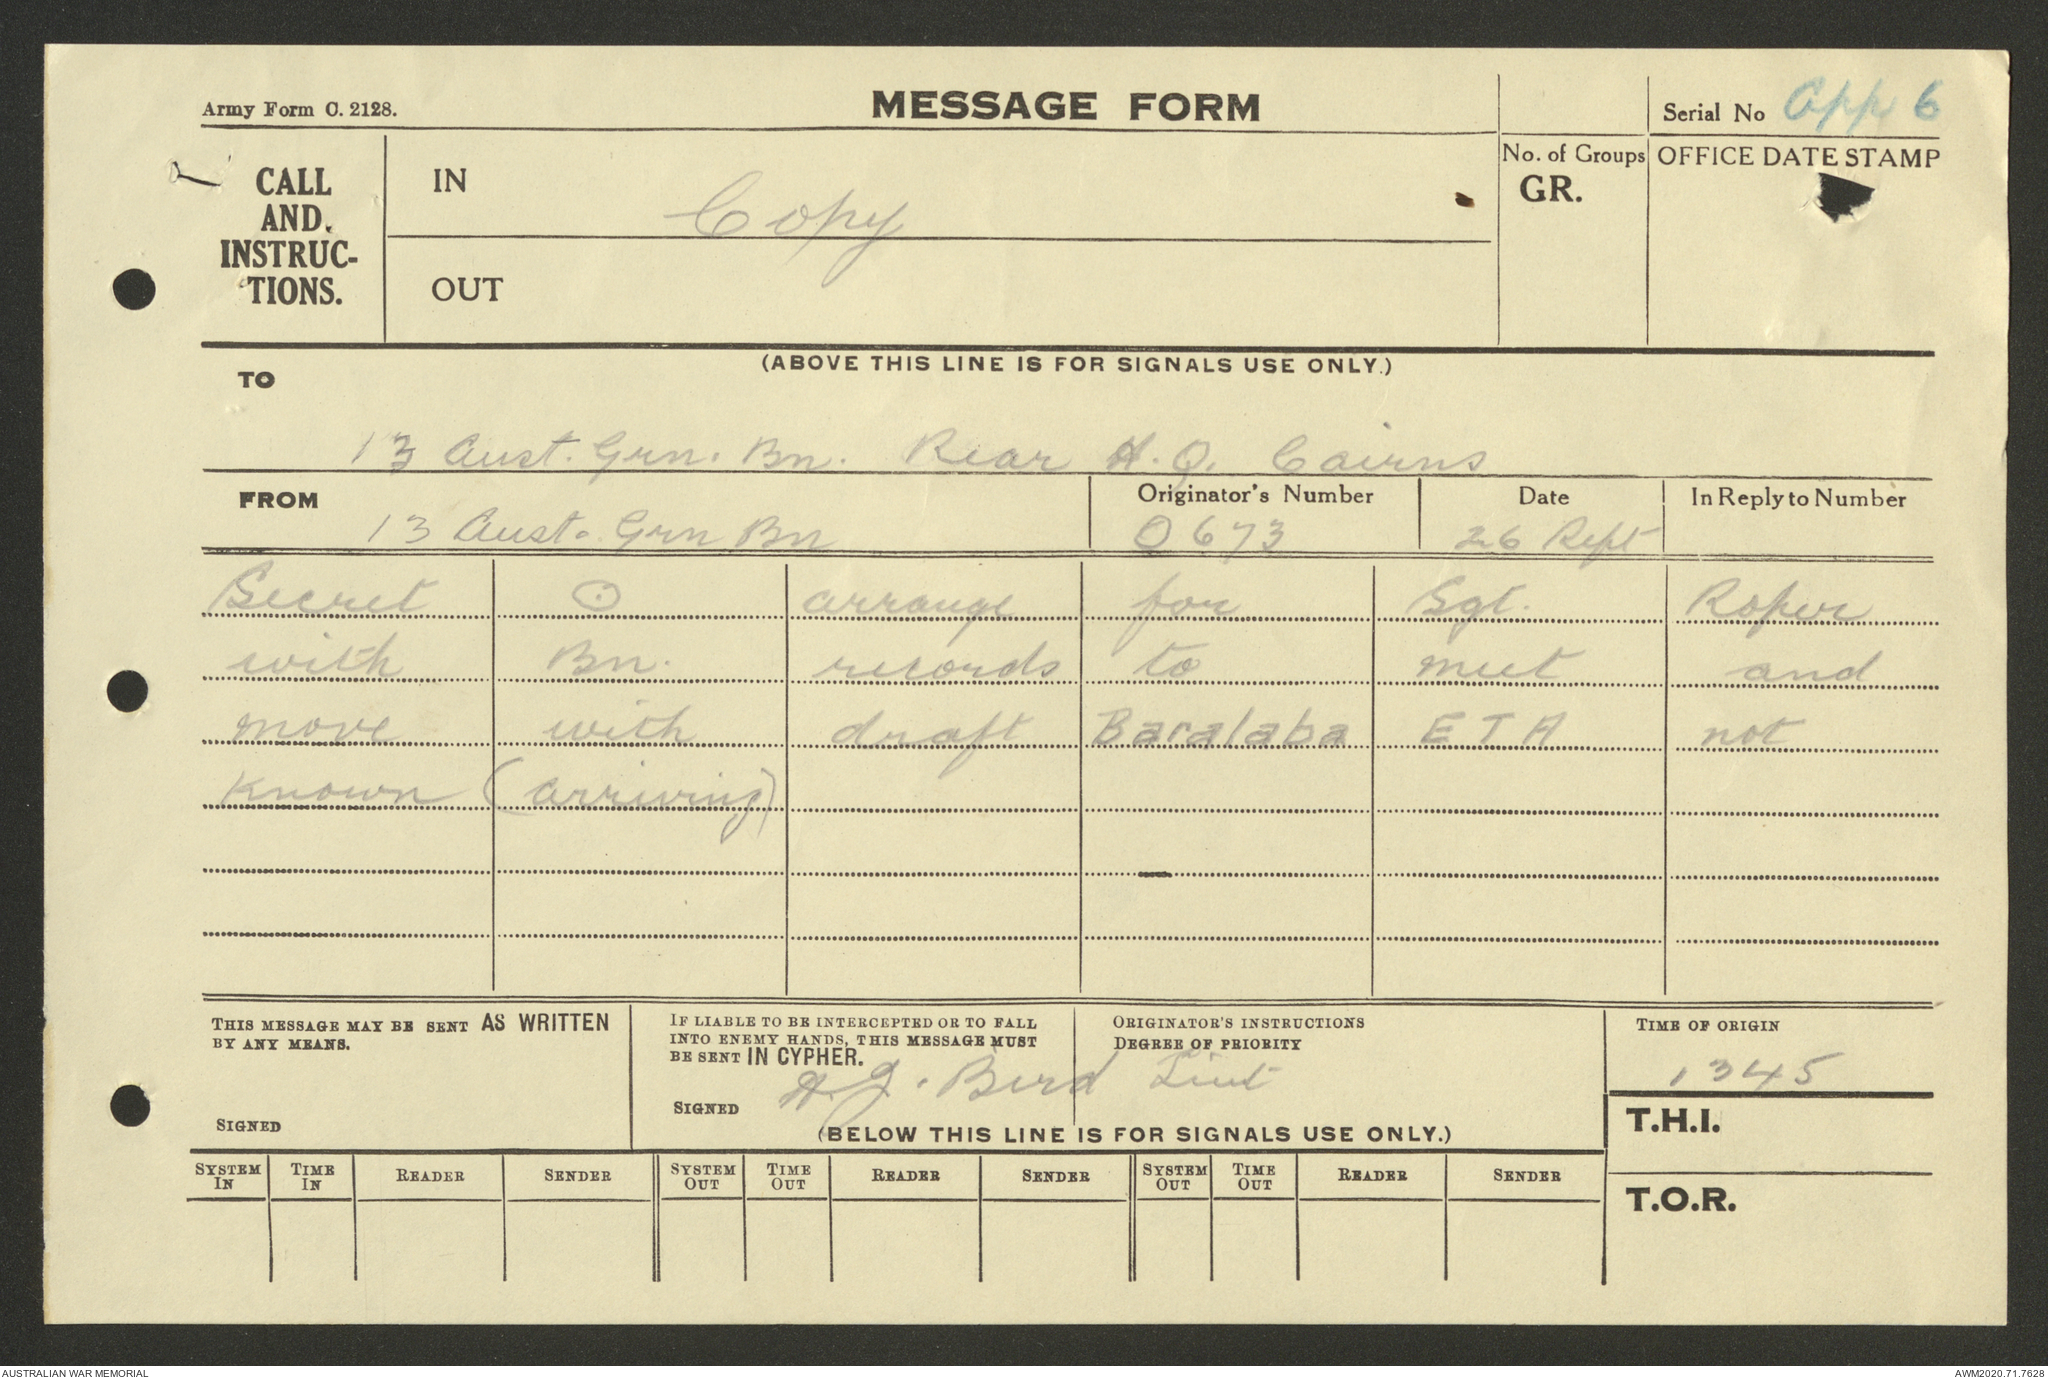 Army Form C. 2128.
MESSAGE FORM
Serial No App 6
CALL
AND
INSTRUC-
TIONS.
IN
Copy
OUT
No. of Groups
GR.
OFFICE DATE STAMP
(ABOVE THIS LINE IS FOR SIGNALS USE ONLY.)
TO
13 Aust. Grn. Bn. Rear H.Q. Cairns
FROM
13 Aust. Grn Bn
Originator's Number
O673
Date
26 Sept
In Reply to Number
Secret ⊙ arrange for Sgt. Roper
with Bn. records to meet and
move with draft Baralaba ETA not
known (arriving)
THIS MESSAGE MAY BE SENT AS WRITTEN
BY ANY MEANS.
SIGNED
IF LIABLE TO BE INTERCEPTED OR TO FALL
INTO ENEMY HANDS, THIS MESSAGE MUST
BE SENT IN CYPHER.
SIGNED
H.J. Bird Lieut
ORIGINATOR'S INSTRUCTIONS
DEGREE OF PRIORITY
TIME OF ORIGIN
1345
T.H.I.
T.O.R.
(BELOW THIS LINE IS FOR SIGNALS USE ONLY.)
SYSTEM IN TIME IN READER SENDER SYSTEM OUT TIME OUT READER SENDER SYSTEM OUT TIME OUT READER SENDER
AUSTRALIAN WAR MEMORIAL
AWM2020.71.7628